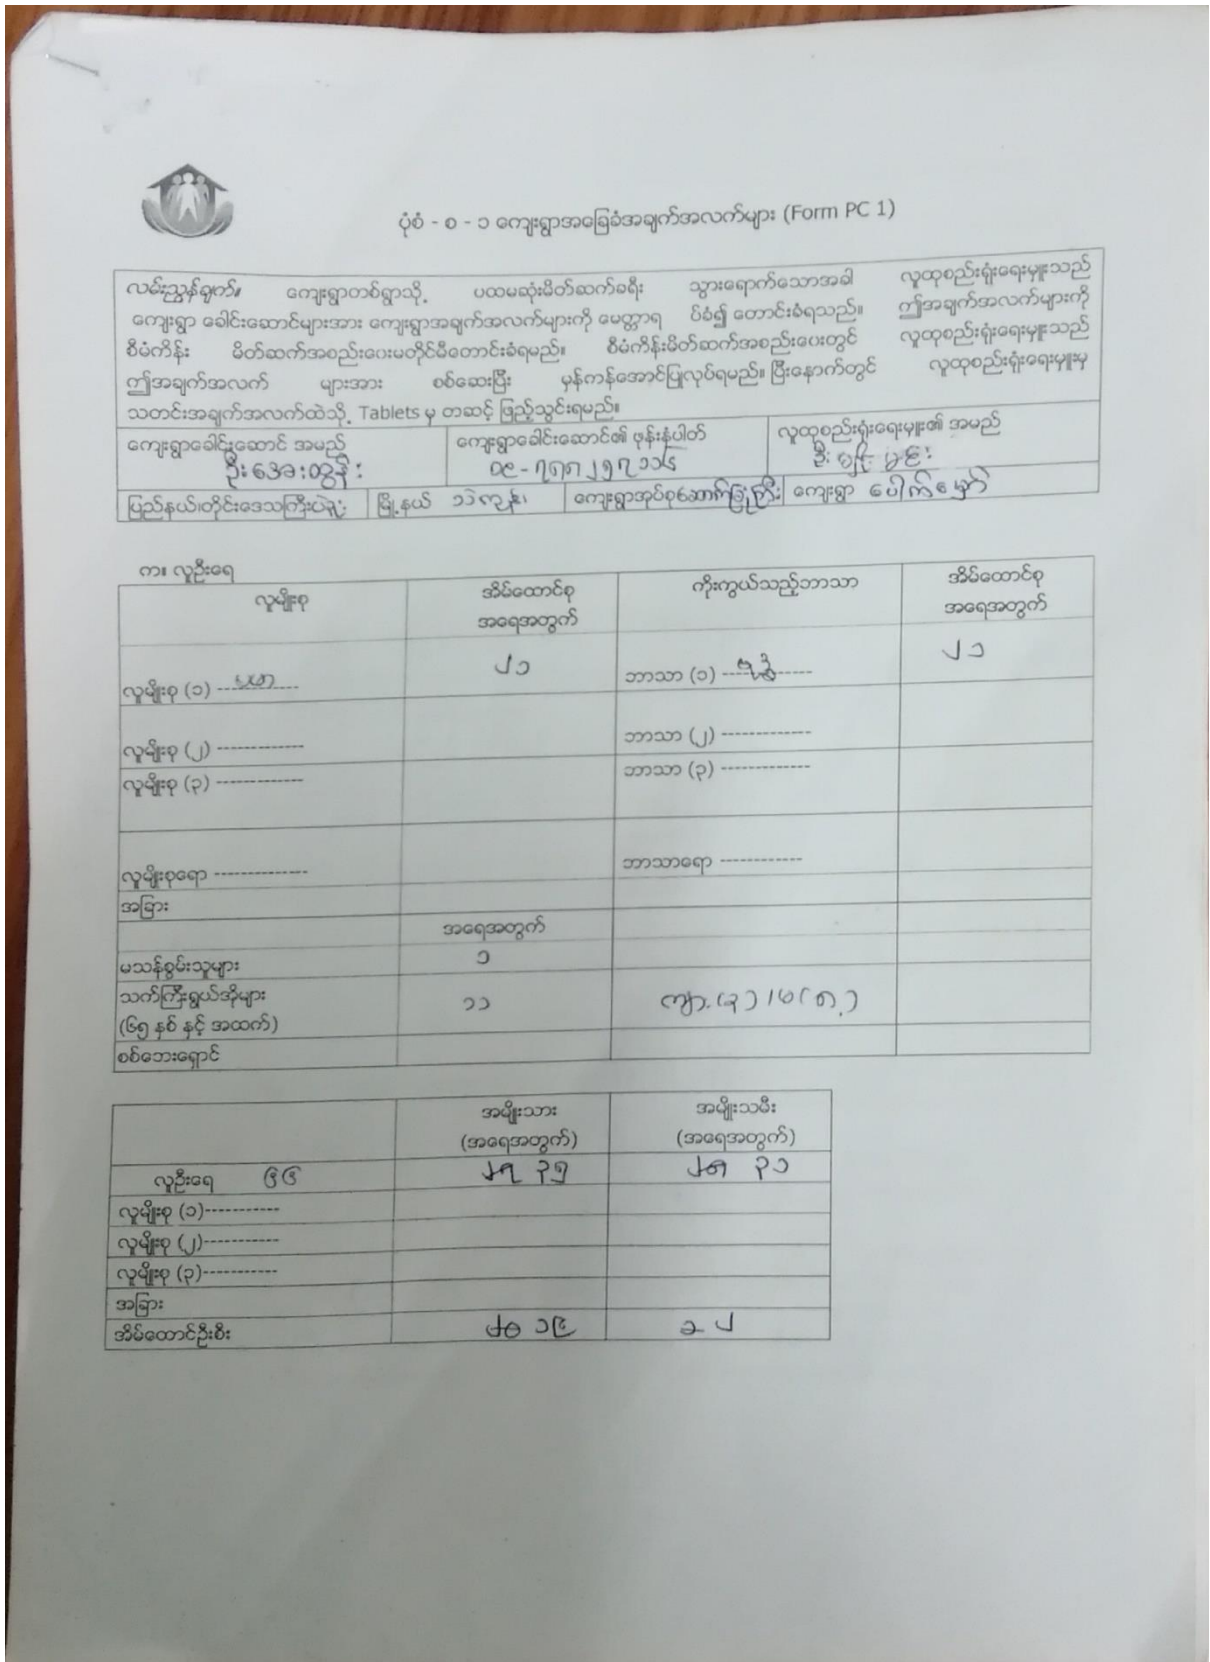 ပုံစံ - စ - ၁ ကျေးရွာအခြေခံအချက်အလက်များ (Form PC 1)
လမ်းညွှန်ချက်။ ကျေးရွာတစ်ရွာသို့ ပထမဆုံးမိတ်ဆက်ခရီး သွားရောက်သောအခါ လူထုစည်းရုံးရေးမှူးသည်
ကျေးရွာ ခေါင်းဆောင်များအား ကျေးရွာအချက်အလက်များကို မေတ္တာရ ပ်ခံ၍ တောင်းခံရသည်။ ဤအချက်အလက်များကို
စီမံကိန်း မိတ်ဆက်အစည်းဝေးမတိုင်မီတောင်းခံရမည်။ စီမံကိန်းမိတ်ဆက်အစည်းဝေးတွင် လူထုစည်းရုံးရေးမှူးသည်
ဤအချက်အလက် များအား စစ်ဆေးပြီး မှန်ကန်အောင်ပြုလုပ်ရမည်။ ပြီးနောက်တွင် လူထုစည်းရုံးရေးမှူးမှ
သတင်းအချက်အလက်ထဲသို့ Tablets မှ တဆင့် ဖြည့်သွင်းရမည်။
ကျေးရွာခေါင်းဆောင် အမည် ကျေးရွာခေါင်းဆောင်၏ ဖုန်းနံပါတ် လူထုစည်းရုံးရေးမှူး၏ အမည်
ဦးအေးထွန်း
ပြည်နယ်၊တိုင်းဒေသကြီးပဲခူး မြို့နယ် သဲကုန်း ကျေးရွာအုပ်စုဆောက်ခြံကြီး ကျေးရွာ ပေါက်မှော်
က။ လူဦးရေ
လူမျိုးစု အိမ်ထောင်စု အရေအတွက် ကိုးကွယ်သည့်ဘာသာ အိမ်ထောင်စု အရေအတွက်
လူမျိုးစု (၁) ------------ ဗမာ ၂၁ ဘာသာ (၁) ------------ ဗုဒ္ဓ ၂၁
လူမျိုးစု (၂) ------------ ဘာသာ (၂) ------------
လူမျိုးစု (၃) ------------ ဘာသာ (၃) ------------
လူမျိုးစုရော ------------ ဘာသာရော ------------
အခြား
အရေအတွက်
မသန်စွမ်းသူများ ၁
သက်ကြီးရွယ်အိုများ ၁၁
(၆၅ နှစ် နှင့် အထက်)
စစ်ဘေးရှောင်
အမျိုးသား အမျိုးသမီး
(အရေအတွက်) (အရေအတွက်)
လူဦးရေ ၆၆ ၃၅ ၃၁
လူမျိုးစု (၁)-----------
လူမျိုးစု (၂)-----------
လူမျိုးစု (၃)-----------
အခြား
အိမ်ထောင်ဦးစီး ၁၉ ၂